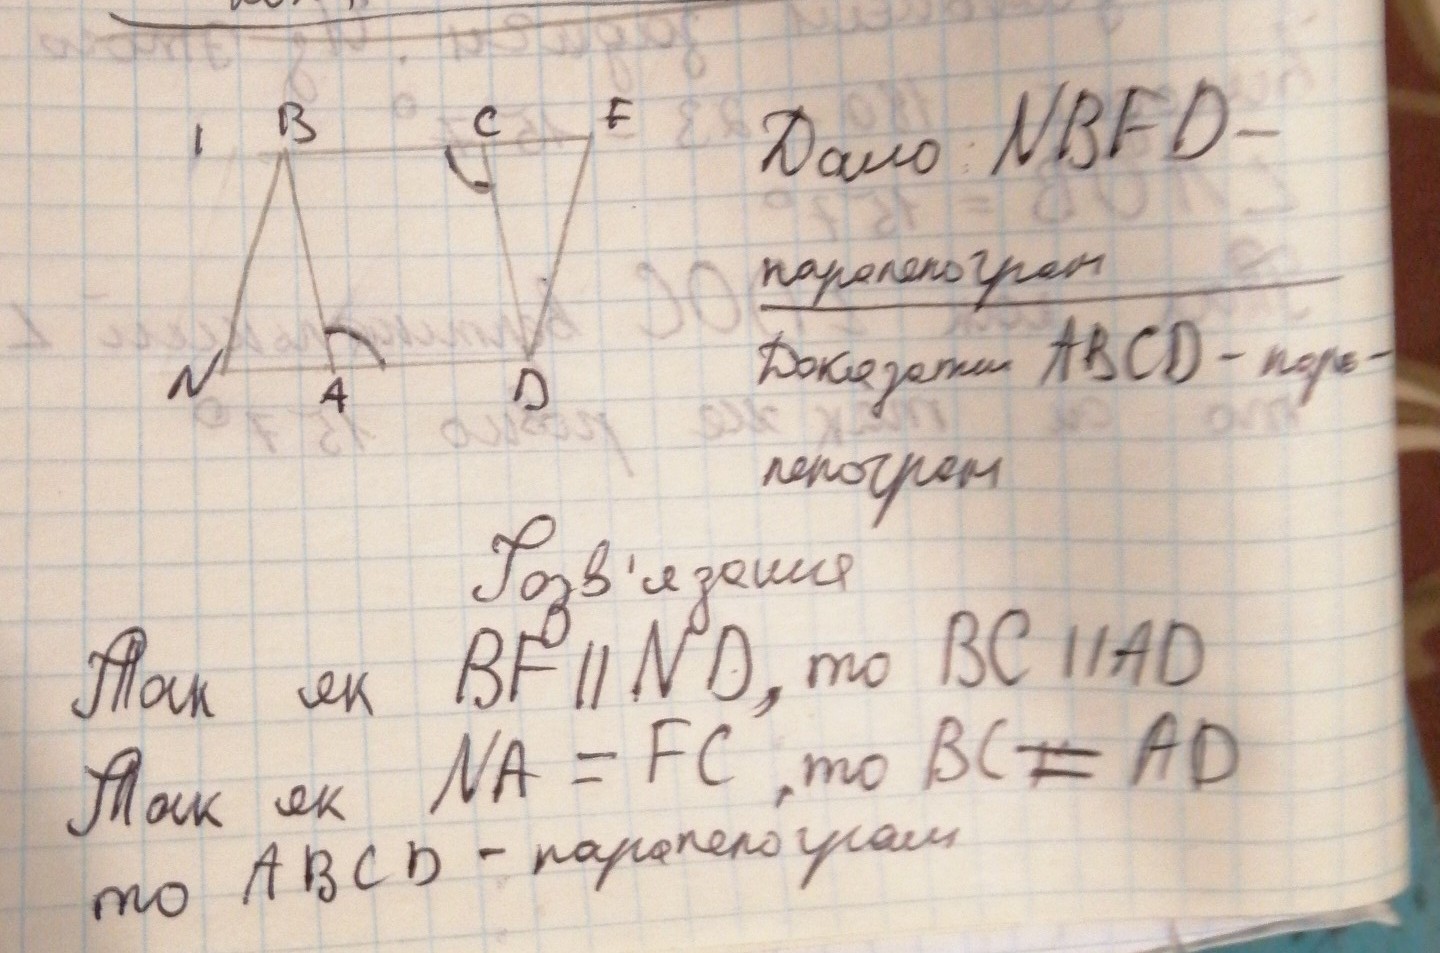 1 B C F
N A D
Дано: NBFD-
паралелограм
Доказати ABCD - пара-
лелограм
Розв'язання
Так як BF || ND, то BC || AD
Так як NA = FC, то BC = AD
то ABCD - паралелограм